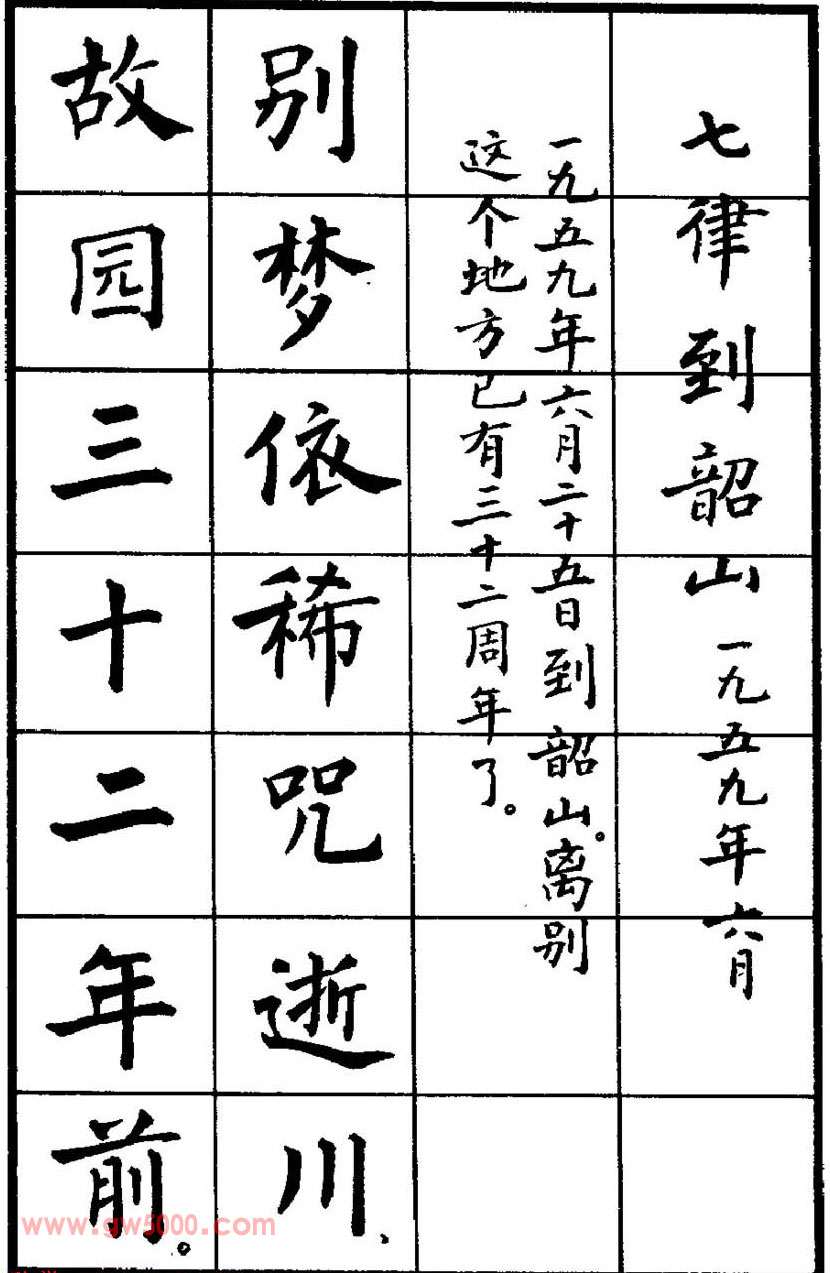 七律到韶山 一九五九年六月
一九五九年六月二十五日到韶山。离别
这个地方已有三十二周年了。
别梦依稀咒逝川、
故园三十二年前。
www.gw5000.com